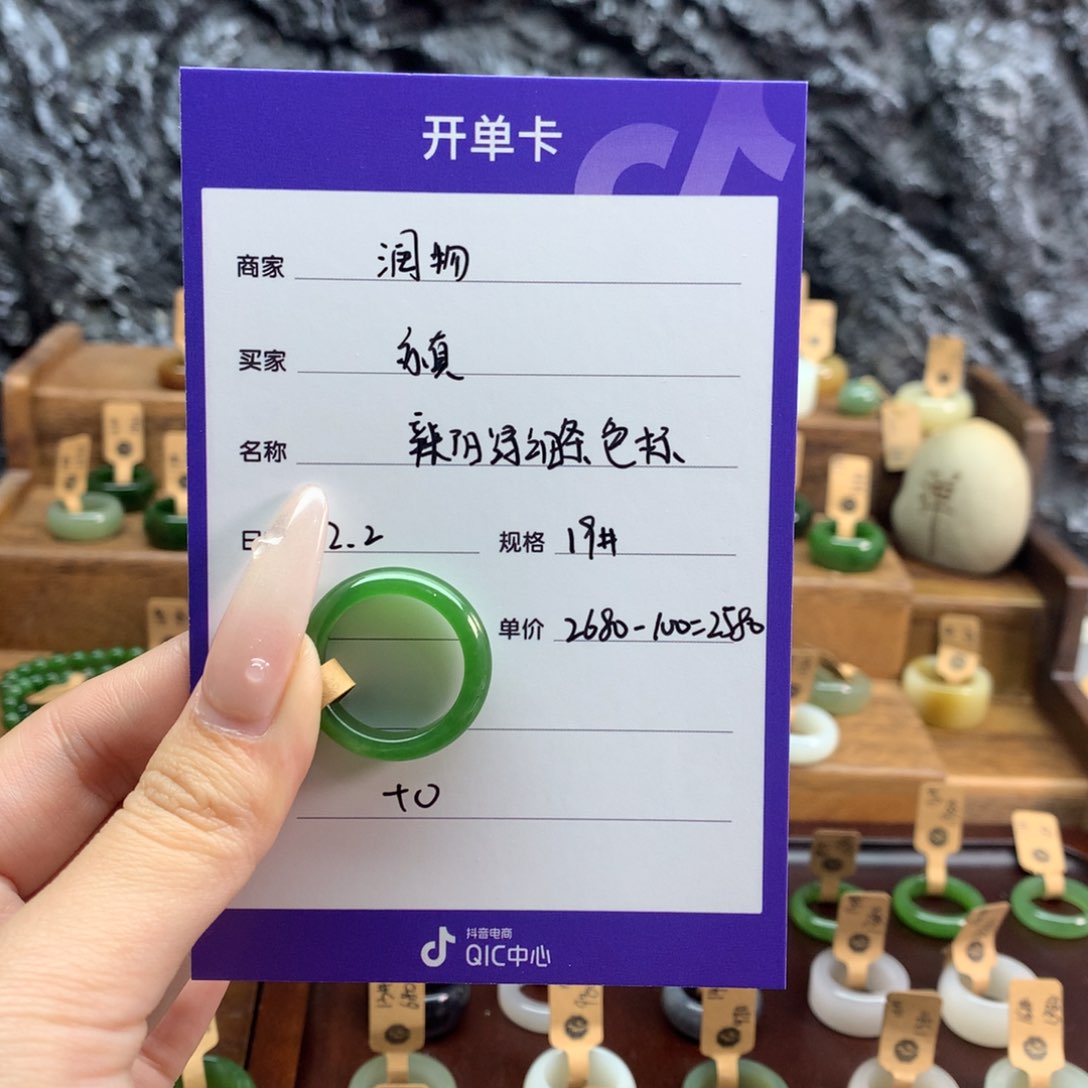 开单卡
商家 润物
买家 亦真
名称 辣阳绿细条色标
2.2 规格 19#
单价 2680-100=2580
+0
抖音电商
QIC中心